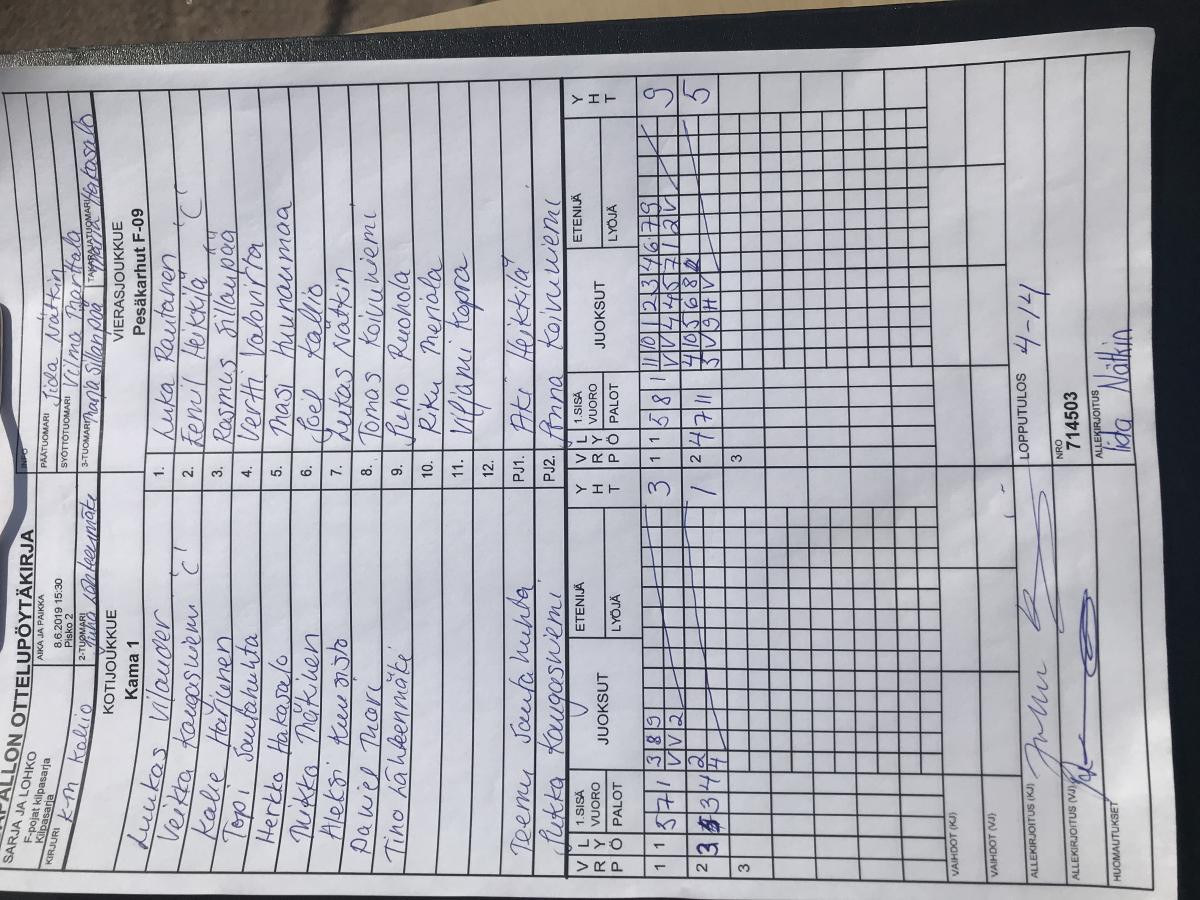 PALLON OTTELUPÖYTÄKIRJA
SARJA JA LOHKO
F-pojat kilpasarja
Kilpasarja
AIKA JA PAIKKA
8.6.2019 15:30
Pisko 2
INFO
PÄÄTUOMARI Iida Nätkin
SYÖTTÖTUOMARI Vilma
KIRJURI K-M Kallio
2-TUOMARI Juha Lähteenmäki
3-TUOMARI Marja Sillanpää
TAKARAJATUOMARI Hakasalo
KOTIJOUKKUE
Kama 1
VIERASJOUKKUE
Pesäkarhut F-09
Luukas Vilander 1. Luka Rautanen
Veikka Kangasniemi C 2. Eemil Heikkilä C
Kalle 3. Rasmus Sillanpää
Topi Santahuhta 4. Vertti Valovirta
Herkko Hakasalo 5. Masi Hunnanmaa
Miikka Mäkinen 6. Joel Kallio
Aleksi Kuusisto 7. Lukas Nätkin
Daniel Mari 8. Tomas Koivuniemi
Tino Lähteenmäki 9. Juho Ruohola
10. Riku Meriala
11. Viljami Kopra
12.
Teemu Santahuhta PJ1. Aki Heikkilä
Jukka Kangasniemi PJ2. Anna Koivuniemi
V R P L Y Ö 1.SISÄ VUORO PALOT JUOKSUT ETENIJÄ LYÖJÄ Y H T V R P L Y Ö 1.SISÄ VUORO PALOT JUOKSUT ETENIJÄ LYÖJÄ Y H T
1 1 571 389 3 1 1 581 11 10 1 2 3 4 6 7 9 9
V V 2 V V 4 4 5 7 1 2 V
2 3 342 2 1 2 4 711 4 10 5 6 8 5
4 3 V 9 H V
3 3
VAIHDOT (KJ)
VAIHDOT (VJ)
ALLEKIRJOITUS (KJ)
LOPPUTULOS 4-14
ALLEKIRJOITUS (VJ)
NRO
714503
HUOMAUTUKSET
ALLEKIRJOITUS
Iida Nätkin